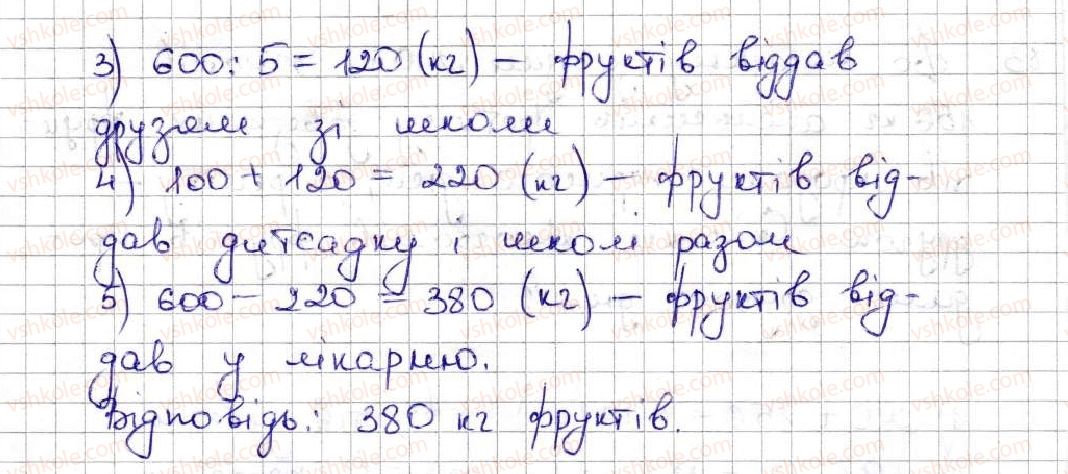 3) 600 : 5 = 120 (кг) – фруктів віддав
друзям зі школи
4) 100 + 120 = 220 (кг) – фруктів від-
дав дитсадку і школі разом
5) 600 – 220 = 380 (кг) – фруктів від-
дав у лікарню.
Відповідь: 380 кг фруктів.